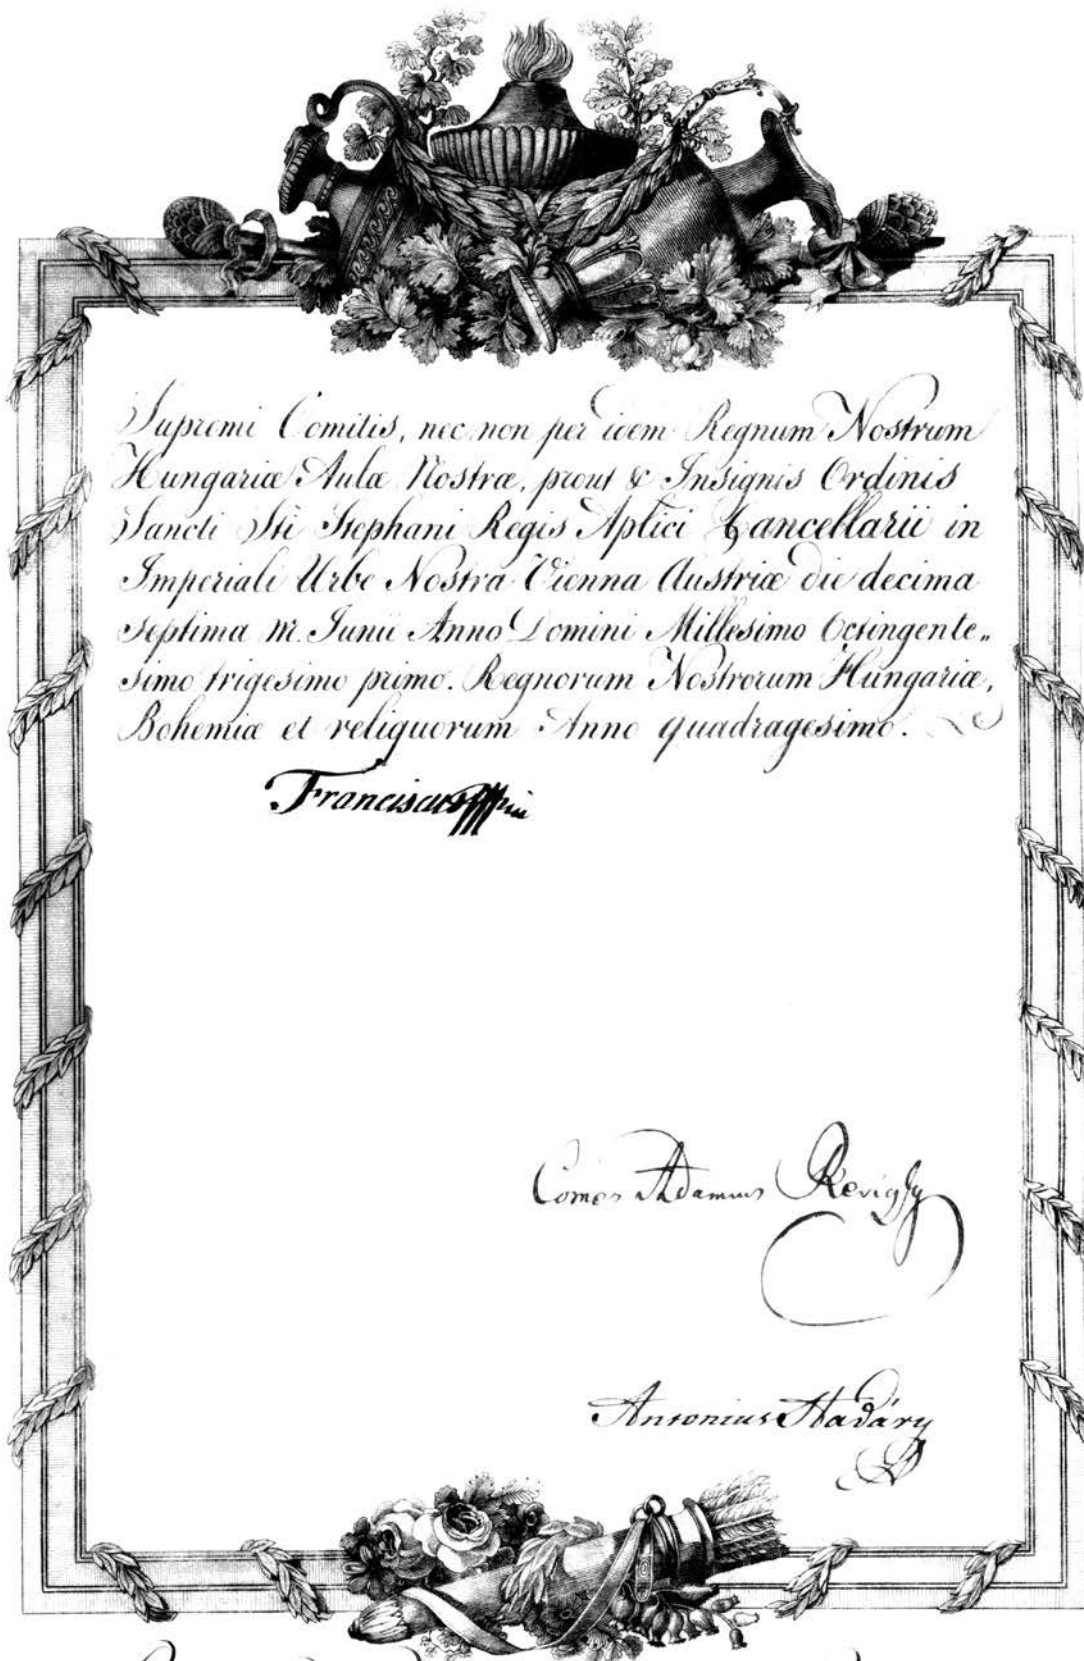 Supremi Comitis, nec non per idem Regnum Nostrum
Hungariæ Aulæ Nostræ, prout & Insignis Ordinis
Sancti Sti Stephani Regis Aplici Cancellarii in
Imperiali Urbe Nostra Vienna Austriæ die decima
septima m. Junii Anno Domini Millesimo Octingente„
simo trigesimo primo. Regnorum Nostrorum Hungariæ,
Bohemiæ et reliquorum Anno quadragesimo.
Franciscus
Comes Adamus Revizky
Antonius